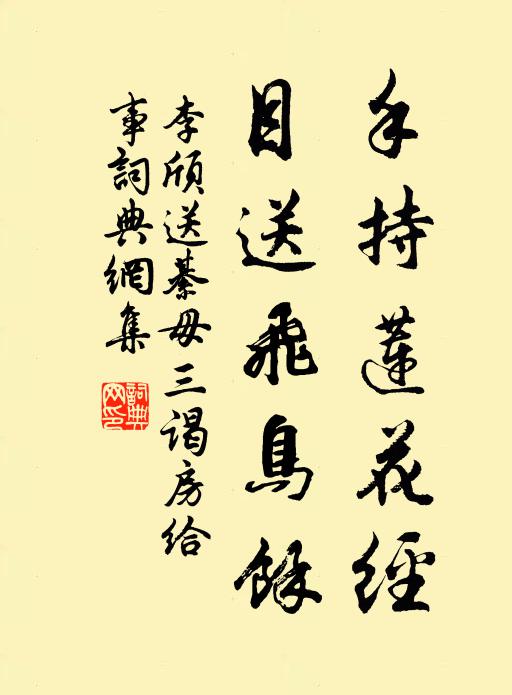 手持蓮花經
目送飛鳥餘
李頎送綦毋三謁房給
事詞典網集
詞典
网印